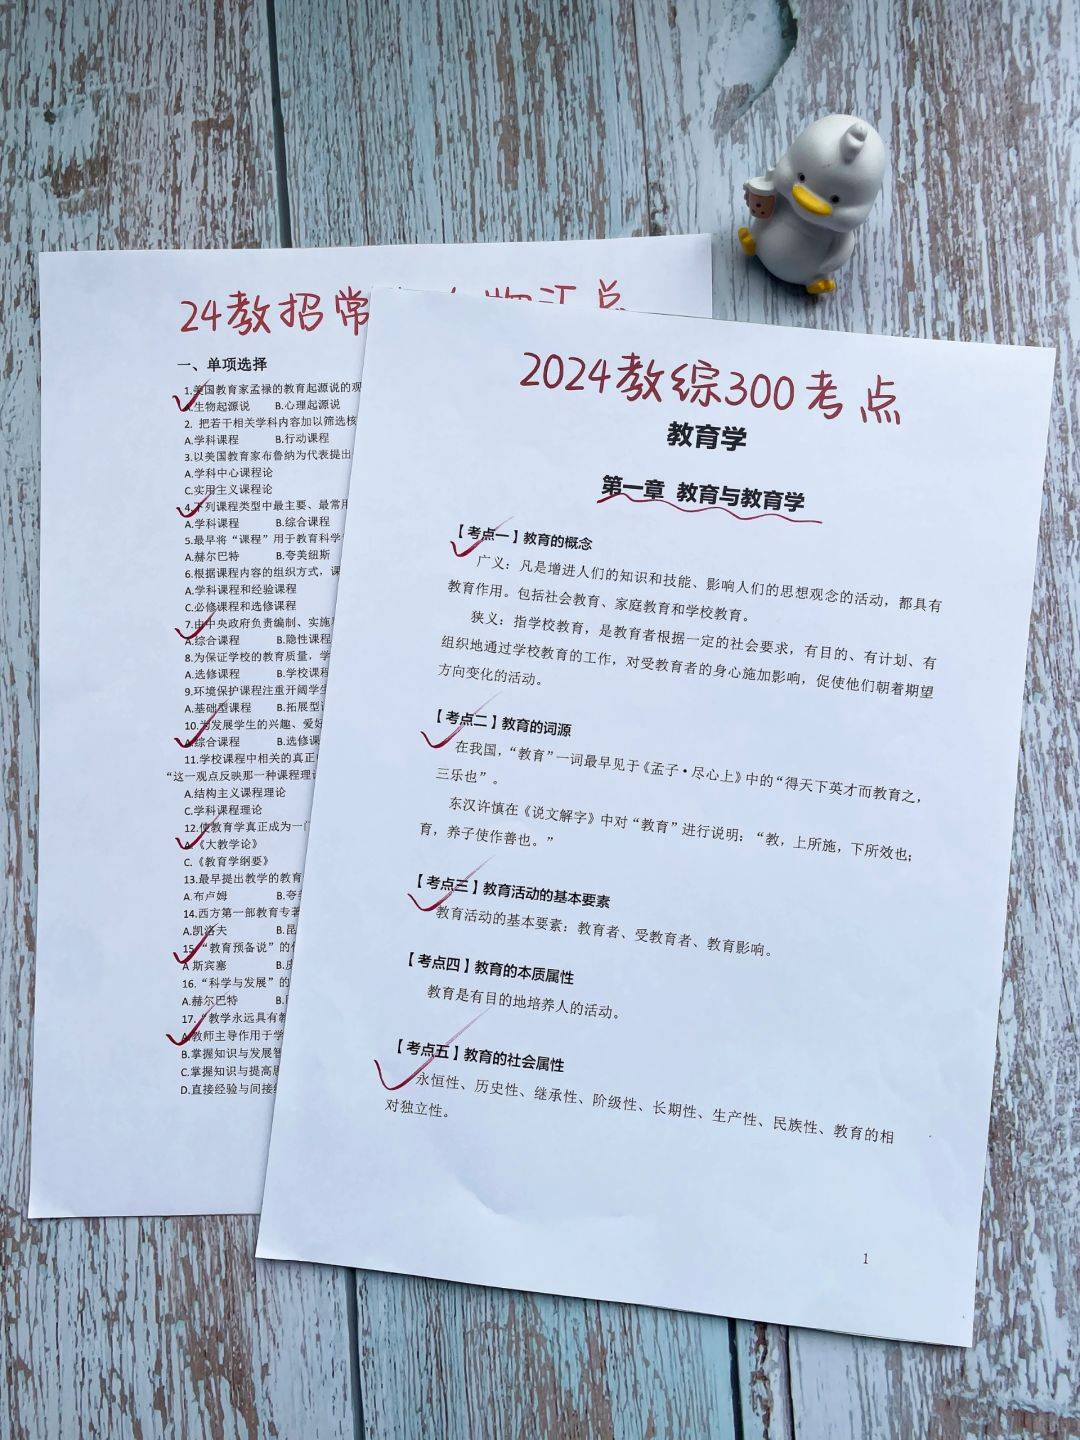 24教招常
一、单项选择
1.美国教育家孟禄的教育起源说的观
A.生物起源说 B.心理起源说
2. 把若干相关学科内容加以筛选核
A.学科课程 B.行动课程
3.以美国教育家布鲁纳为代表提出
A.学科中心课程论
C.实用主义课程论
4.下列课程类型中最主要、最常用
A.学科课程 B.综合课程
5.最早将“课程”用于教育科学
A.赫尔巴特 B.夸美纽斯
6.根据课程内容的组织方式，课
A.学科课程和经验课程
C.必修课程和选修课程
7.由中央政府负责编制、实施
A.综合课程 B.隐性课程
8.为保证学校的教育质量，学
A.选修课程 B.学校课程
9.环境保护课程注重开阔学生
A.基础型课程 B.拓展型
10.为发展学生的兴趣、爱好
A.综合课程 B.选修课
11.学校课程中相关的真正
“这一观点反映那一种课程理
A.结构主义课程理论
C.学科课程理论
12.使教育学真正成为一门
A.《大教学论》
C.《教育学纲要》
13.最早提出教学的教育
A.布卢姆 B.夸美
14.西方第一部教育专著
A.凯洛夫 B.昆
15.“教育预备说”的
A 斯宾塞 B.
16.“科学与发展”的
A.赫尔巴特 B.
17.“教学永远具有教
A.教师主导作用于学
B.掌握知识与发展智
C.掌握知识与提高思
D.直接经验与间接经
2024教综300考点
教育学
第一章 教育与教育学
【考点一】教育的概念
广义：凡是增进人们的知识和技能、影响人们的思想观念的活动，都具有
教育作用。包括社会教育、家庭教育和学校教育。
狭义：指学校教育，是教育者根据一定的社会要求，有目的、有计划、有
组织地通过学校教育的工作，对受教育者的身心施加影响，促使他们朝着期望
方向变化的活动。
【考点二】教育的词源
在我国，“教育”一词最早见于《孟子·尽心上》中的“得天下英才而教育之，
三乐也”。
东汉许慎在《说文解字》中对“教育”进行说明：“教，上所施，下所效也；
育，养子使作善也。”
【考点三】教育活动的基本要素
教育活动的基本要素：教育者、受教育者、教育影响。
【考点四】教育的本质属性
教育是有目的地培养人的活动。
【考点五】教育的社会属性
永恒性、历史性、继承性、阶级性、长期性、生产性、民族性、教育的相
对独立性。
1